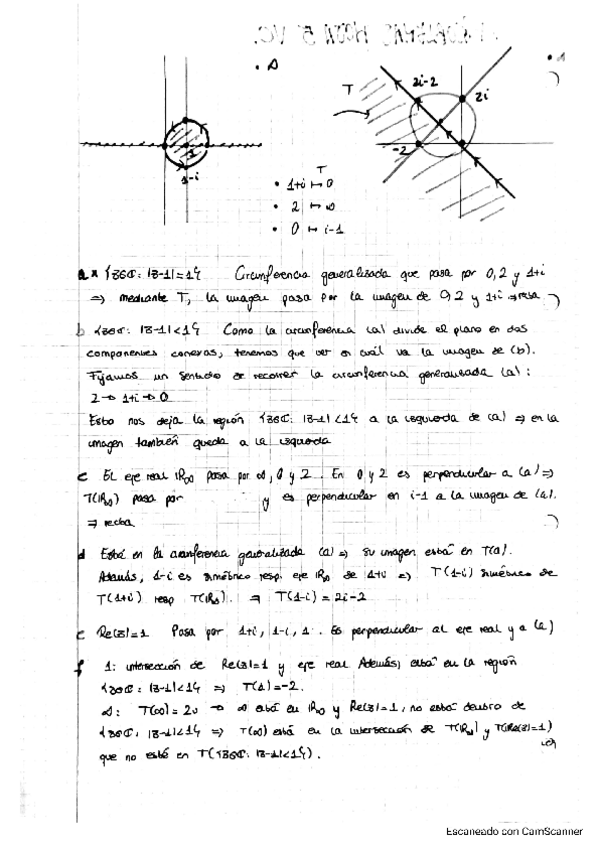 T
2i-2
2i
-2
1
1-i
T
• 1+i ↦ 0
• 2 ↦ ∞
• 0 ↦ i-1
a {z∈ℂ: |z-1|=1} Circunferencia generalizada que pasa por 0, 2 y 1+i
⇒ mediante T, la imagen pasa por la imagen de 0, 2 y 1+i ⇒ recta
b {z∈ℂ: |z-1|<1} Como la circunferencia (a) divide el plano en dos
componentes conexas, tenemos que ver en cuál va la imagen de (b).
Fijamos un sentido de recorrer la circunferencia generalizada (a):
2 → 1+i → 0
Esto nos deja la región {z∈ℂ: |z-1|<1} a la izquierda de (a) ⇒ en la
imagen también queda a la izquierda
c El eje real ℝ∞ pasa por ∞, 0 y 2. En 0 y 2 es perpendicular a (a) ⇒
T(ℝ∞) pasa por y es perpendicular en i-1 a la imagen de (a).
⇒ recta
d Está en la circunferencia generalizada (a) ⇒ su imagen está en T(a).
Además, 1-i es simétrico resp. eje ℝ∞ de 1+i ⇒ T(1-i) simétrico de
T(1+i) resp T(ℝ∞). ⇒ T(1-i) = 2i-2
e Re(z)=1 Pasa por 1+i, 1-i, 1. Es perpendicular al eje real y a (a)
f 1: intersección de Re(z)=1 y eje real Además, está en la región
{z∈ℂ: |z-1|<1} ⇒ T(1)=-2.
∞: T(∞)=2i → ∞ está en ℝ∞ y Re(z)=1, no está dentro de
{z∈ℂ: |z-1|<1} ⇒ T(∞) está en la intersección de T(ℝ∞) y T(Re(z)=1)
que no esté en T({z∈ℂ: |z-1|<1}).
Escaneado con CamScanner